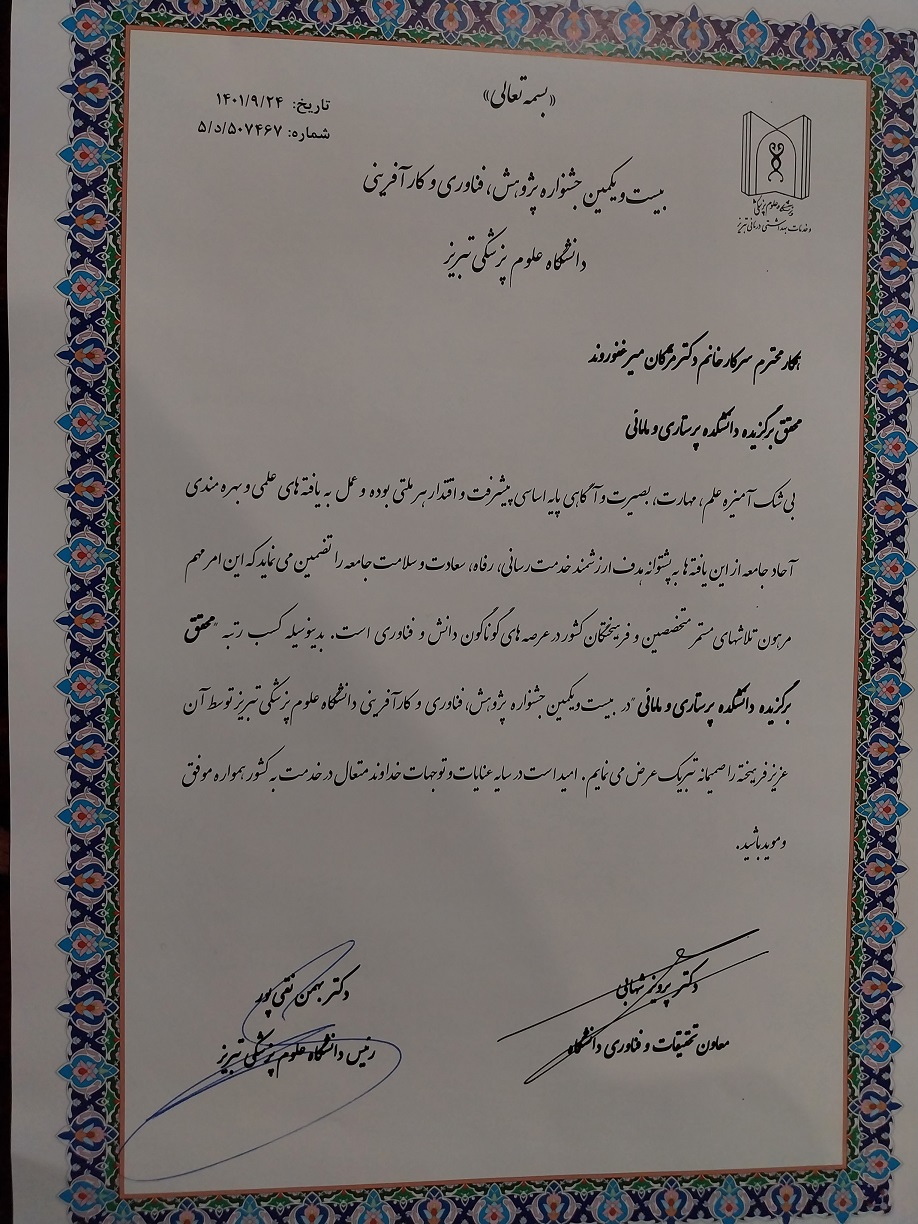 «بسمه تعالی»
تاریخ: ۱۴۰۱/۹/۲۴
شماره: ۵/د/۵۰۷۴۶۷
دانشگاه علوم پزشکی
و خدمات بهداشتی درمانی تبریز
بیست و یکمین جشنواره پژوهش، فناوری و کارآفرینی
دانشگاه علوم پزشکی تبریز
همکار محترم سرکار خانم دکتر مژگان میرغفوروند
محقق برگزیده دانشکده پرستاری و مامائی
بی شک آمیزه علم، مهارت، بصیرت و آگاهی پایه اساسی پیشرفت و اقتدار هر ملتی بوده و عمل به یافته های علمی و بهره مندی
آحاد جامعه از این یافته ها به پشتوانه هدف ارزشمند خدمت رسانی، رفاه، سعادت و سلامت جامعه را تضمین می نماید که این امر مهم
مرهون تلاشهای مستمر متخصصین و فرهیختگان کشور در عرصه های گوناگون دانش و فناوری است. بدینوسیله کسب رتبه "محقق
برگزیده دانشکده پرستاری و مامائی" در بیست و یکمین جشنواره پژوهش، فناوری و کارآفرینی دانشگاه علوم پزشکی تبریز توسط آن
عزیز فرهیخته را صمیمانه تبریک عرض می نمایم. امید است در سایه عنایات و توجهات خداوند متعال در خدمت به کشور همواره موفق
و موید باشید.
دکتر پرویز شهابی
معاون تحقیقات و فناوری دانشگاه
دکتر بهمن نقی پور
رئیس دانشگاه علوم پزشکی تبریز